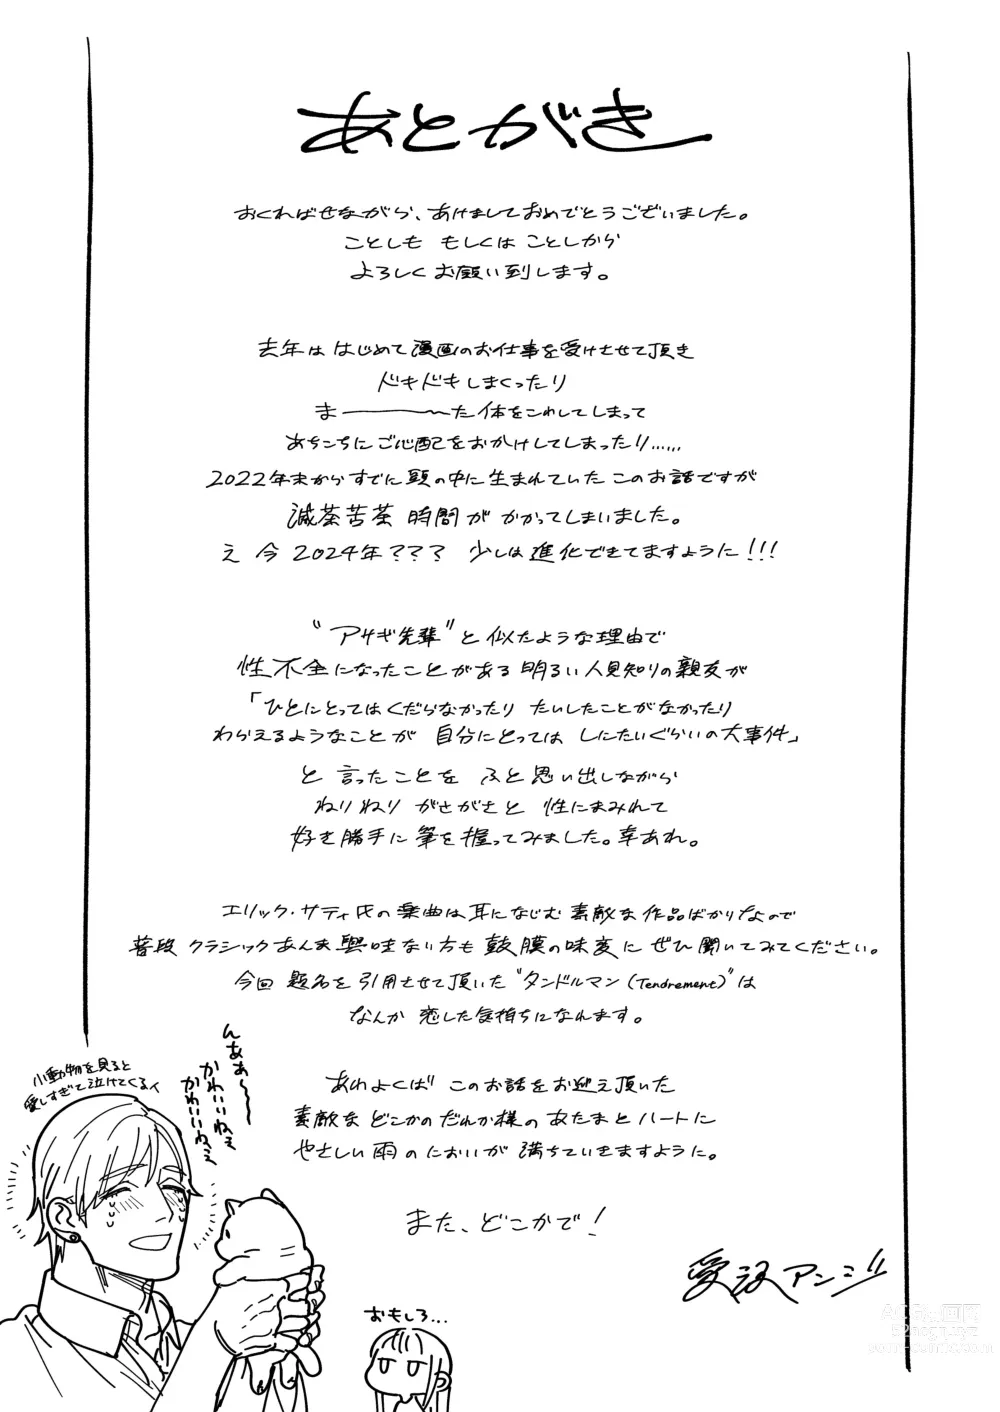 あとがき
おくればせながら、あけましておめでとうございました。
ことしも もしくは ことしから
よろしくお願い到します。
去年は はじめて漫画のお仕事を受けさせて頂き
ドキドキしまくったり
ま────〜た体をこわしてしまって
あちこちにご心配をおかけしてしまったり……
2022年末からすでに頭の中に生まれていたこのお話ですが
滅茶苦茶 時間が かかってしまいました。
え 今 2024年??? 少しは進化できてますように!!!
"アサギ先輩"と似たような理由で
性不全になったことがある明るい人見知りの親友が
「ひとにとってはくだらなかったり たいしたことがなかったり
わらえるようなことが 自分にとっては しにたいぐらいの大事件」
と 言ったことを ふと思い出しながら
ねりねり がさがさと 性にまみれて
好き勝手に筆を握ってみました。幸あれ。
エリック・サティ氏の楽曲は耳になじむ素敵な作品ばかりなので
普段 クラシックあんま興味ない方も鼓膜の味変に ぜひ聞いてみてください。
今回 題名を引用させて頂いた"タンドルマン(Tendrement)"は
なんか 恋した気持ちになれます。
あわよくば このお話をお迎え頂いた
素敵な どこかのだれか様の あたまとハートに
やさしい雨のにおいが 満ちていきますように。
また、どこかで!
アンジ
小動物を見ると
愛しすぎて泣けてくるイ
んあぁ〜
かわいいねぇ
かわいいねぇ
おもしろ...